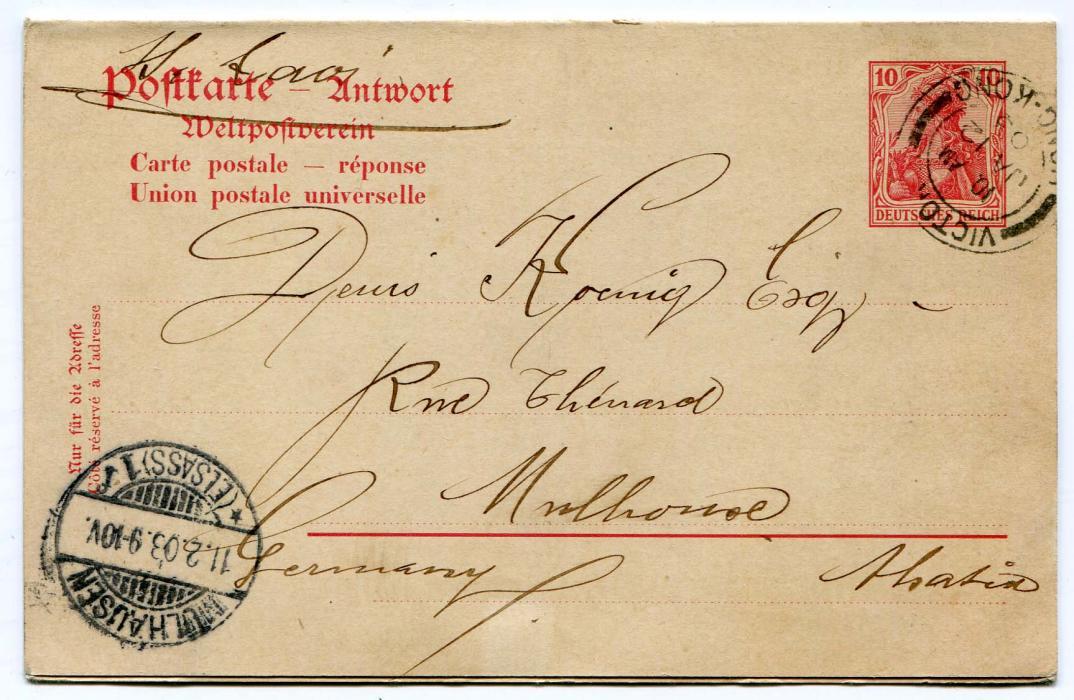 Postkarte – Antwort
Weltpostverein
Carte postale — réponse
Union postale universelle
10 10
DEUTSCHES REICH
VICTORIA HONG-KONG
10
JA 12
03
Denis Koenig Esq
Rue Thénard
Mulhouse
Germany Alsatia
Nur für die Adresse
Côté réservé à l'adresse
MÜLHAUSEN
11.2.03.9-10V.
* (ELSASS) 1